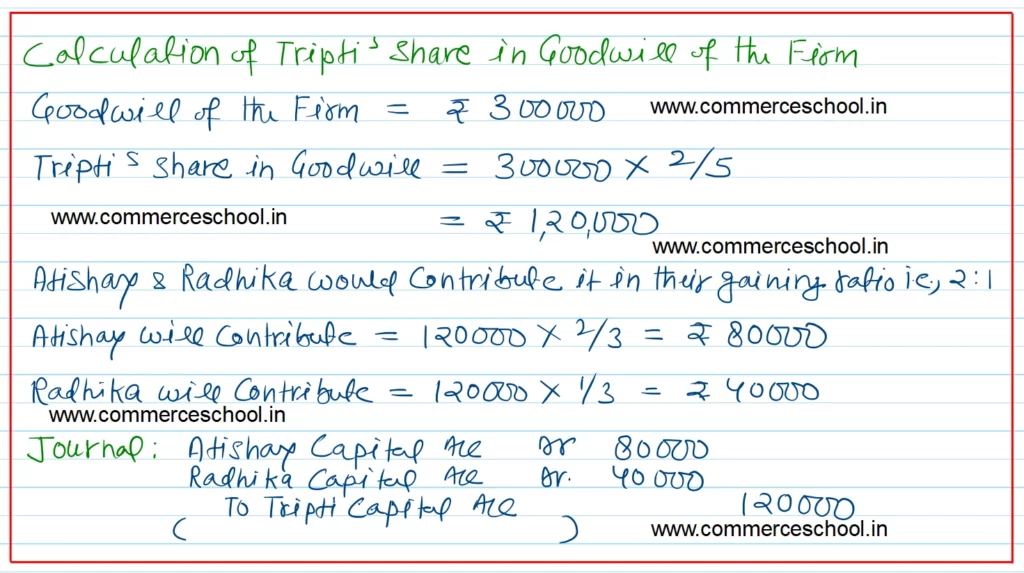 Calculation of Tripti's Share in Goodwill of the Firm
Goodwill of the Firm = ₹ 300000 www.commerceschool.in
Tripti's Share in Goodwill = 300000 × 2/5
www.commerceschool.in = ₹ 1,20,000
www.commerceschool.in
Atishay & Radhika would Contribute it in their gaining ratio i.e., 2:1
Atishay will Contribute = 120000 × 2/3 = ₹ 80000
Radhika will Contribute = 120000 × 1/3 = ₹ 40000
www.commerceschool.in
Journal: Atishay Capital A/c Dr 80000
Radhika Capital A/c Dr. 40000
To Tripti Capital A/c 120000
( ) www.commerceschool.in